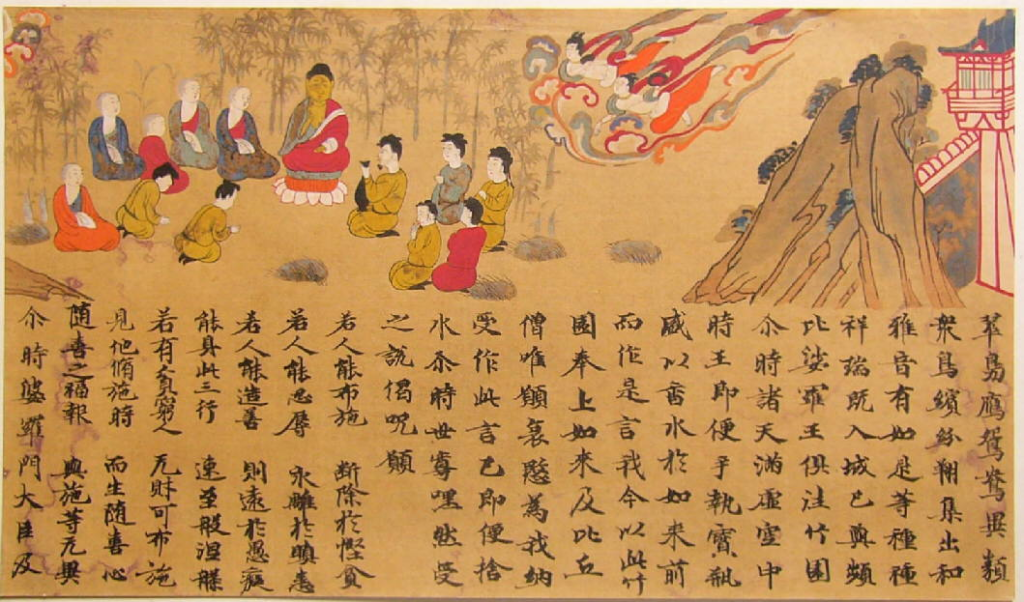 翠鳧鴈鴛鴦異類
衆鳥繽紛翔集出和
雅音有如是等種種
祥瑞既入城已與頻
比娑羅王俱注竹園
尒時諸天滿虛空中
時王即便手執寶瓶
盛以香水於如來前
而作是言我今以此竹
園奉上如來及比丘
僧唯願哀愍為我納
受作此言已即便捨
水尒時世尊嘿然受
之說偈呪願
若人能布施 断除於慳貪
若人能忍辱 永離於瞋恚
若人能造善 則遠於愚癡
能身此三行 速至般涅槃
若有貧窮人 无財可布施
見他脩施時 而生随喜心
随喜之福報 與施等无異
尒時婆羅門大臣及